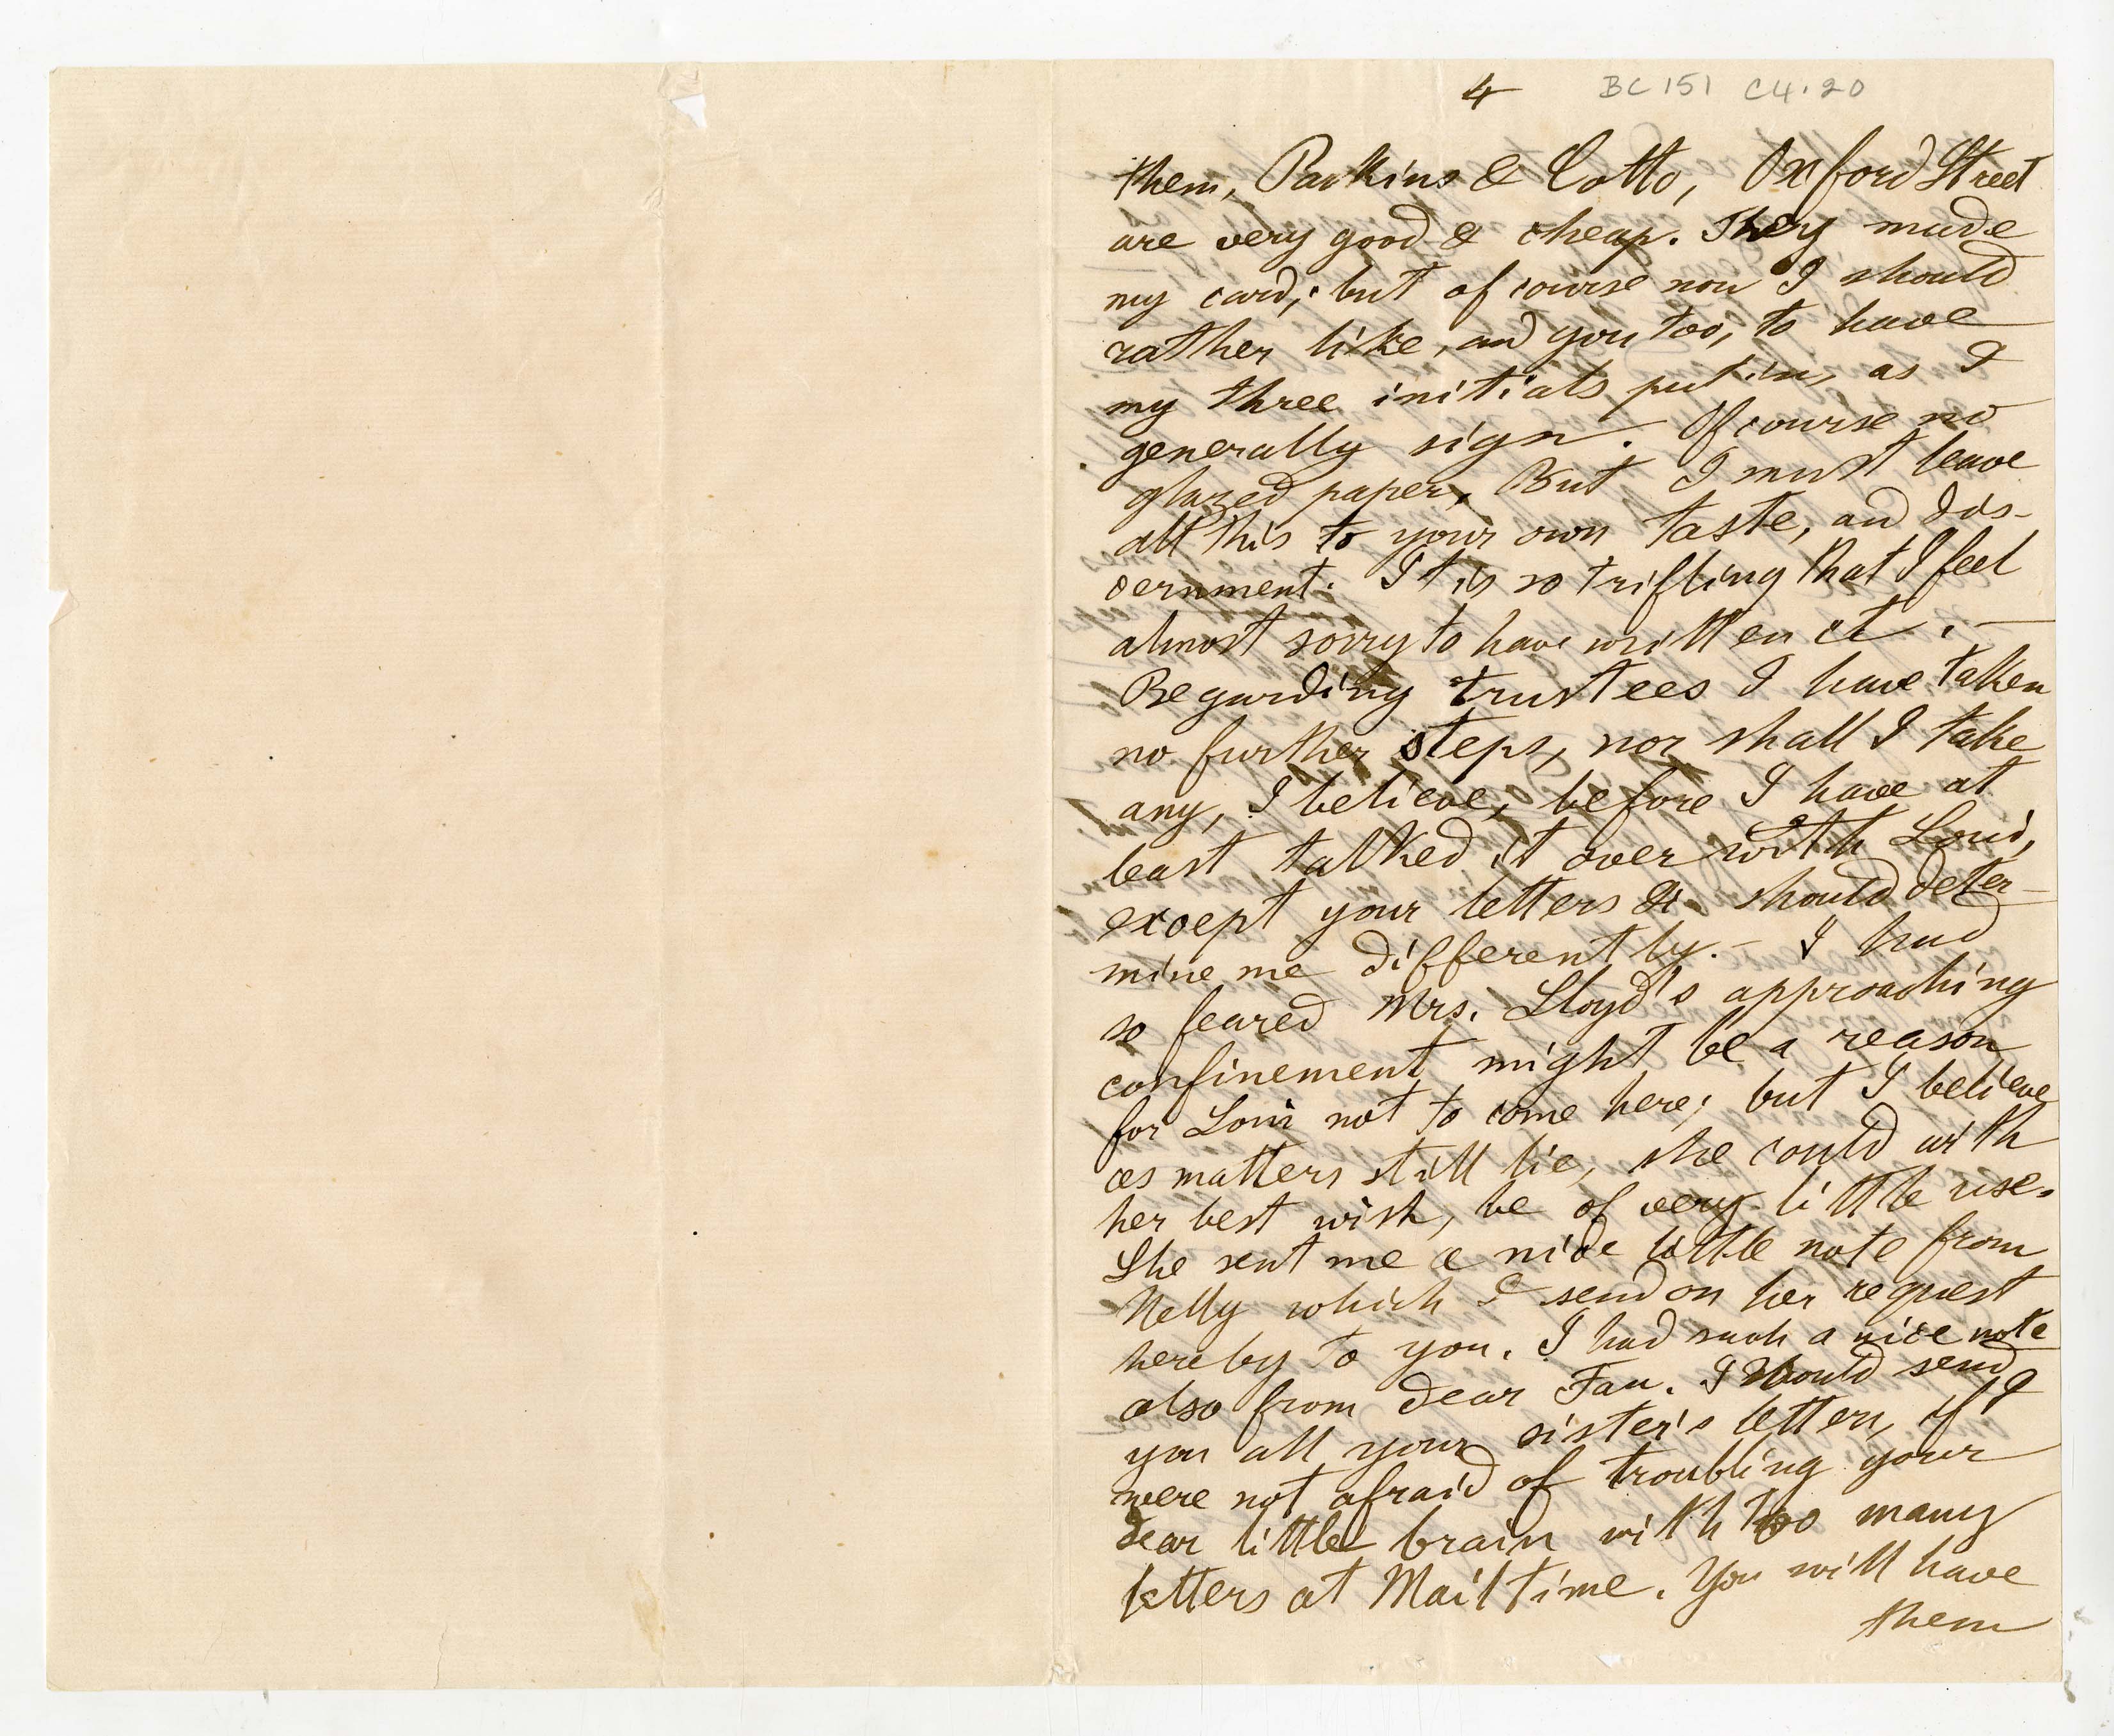 4 BC 151 C4.20
them, Parkins & Cotto, Oxford Street
are very good & cheap. They made
my card; but of course now I should
rather like, and you too, to have
my three initials put in, as I
generally sign. Of course no
glazed paper. But I must leave
all this to your own taste, and dis-
cernment. It is so trifling that I feel
almost sorry to have written it. —
Regarding trustees I have taken
no further steps, nor shall I take
any, I believe, before I have at
least talked it over with Loui,
except your letters &c should deter-
mine me differently. — I had
so feared Mrs. Lloyd's approaching
confinement might be a reason
for Loui not to come here; but I believe
as matters still lie, she could with
her best wish, be of very little use.
She sent me a nice little note from
Nelly which I send on her request
hereby to you. I had such a nice note
also from dear Fan. I would send
you all your sister's letters, if I
were not afraid of troubling your
dear little brain with too many
letters at Mail time. You will have
them